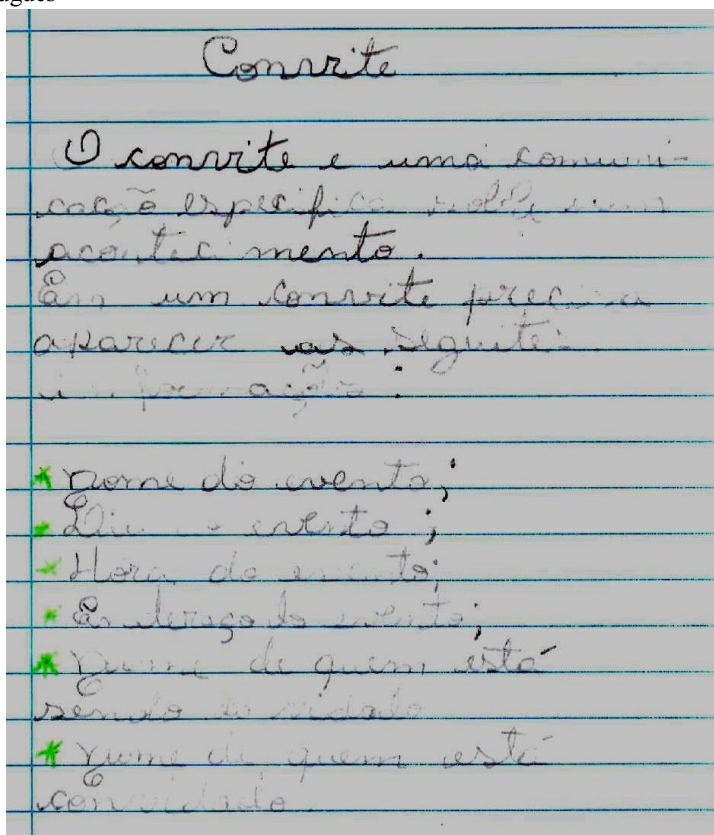 Convite
O convite e uma comuni-
cação especifica sobre um
acontecimento.
Em um convite precisa
aparecer as seguites
informações:
* nome do evento;
* Dia do evento;
* Hora do evento;
* Endereço do evento;
* nome de quem está
sendo convidado
* nome de quem está
convidado.